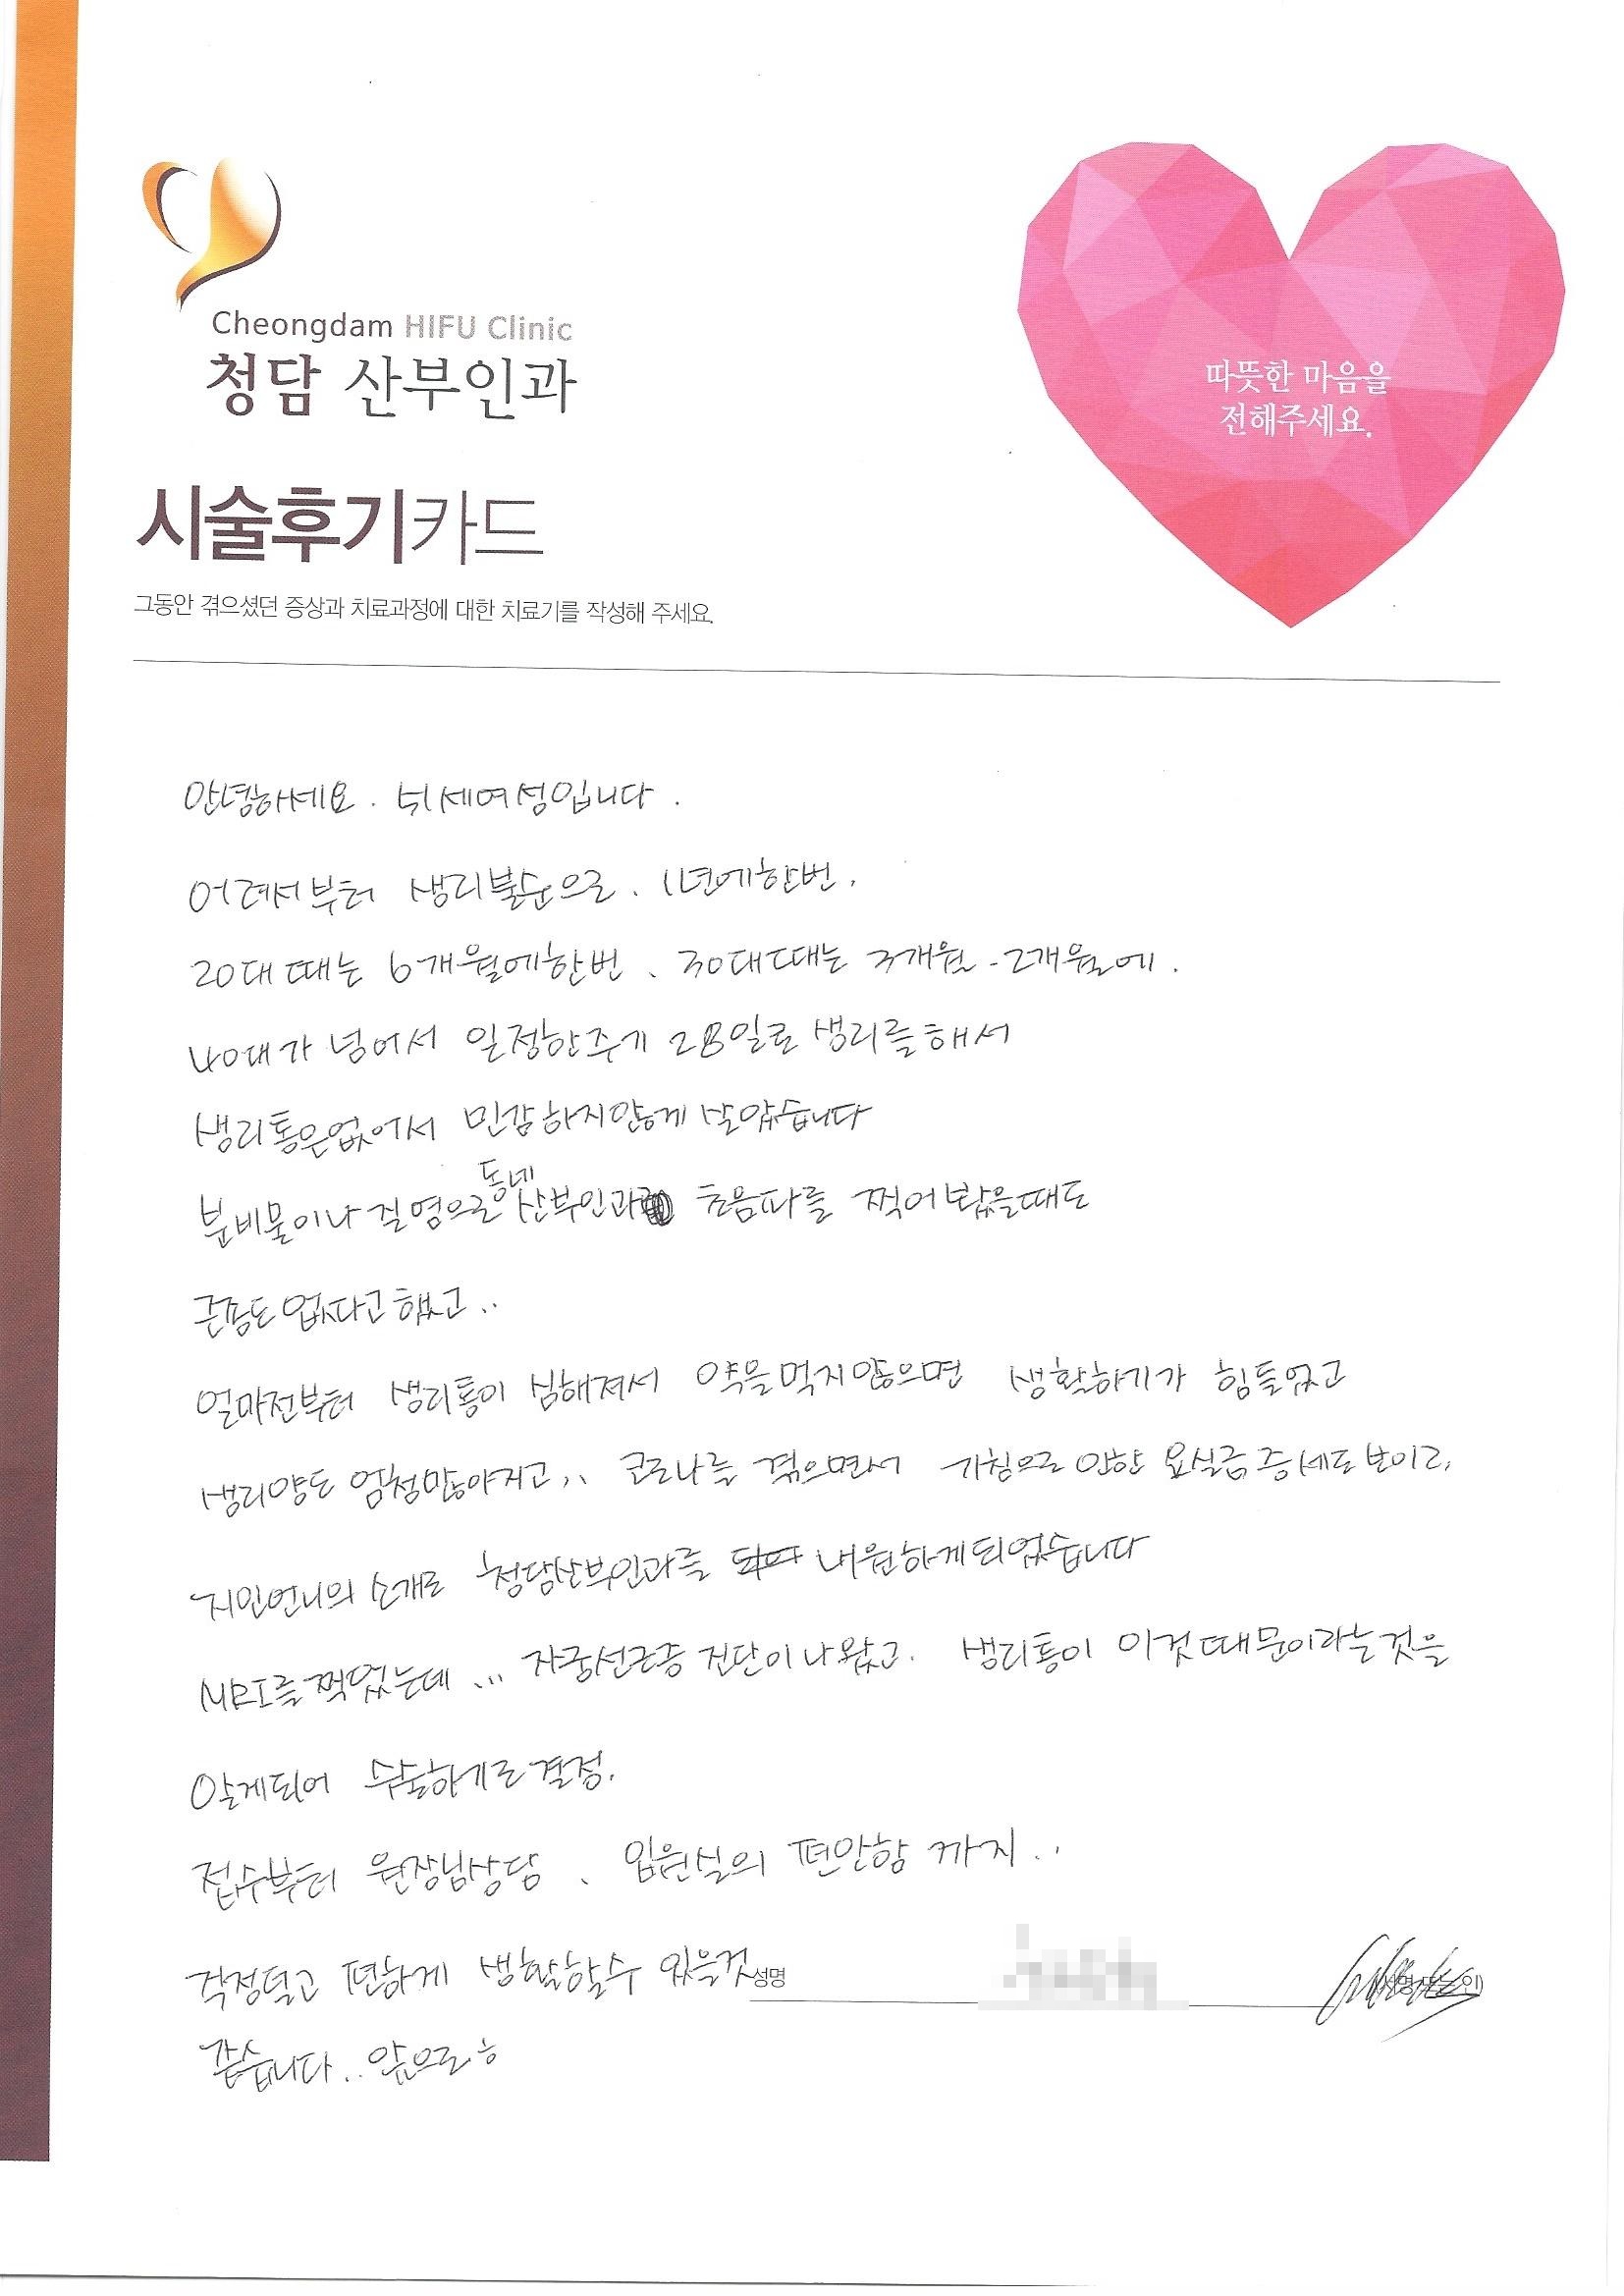 Cheongdam HIFU Clinic
청담 산부인과
따뜻한 마음을
전해주세요.
시술후기카드
그동안 겪으셨던 증상과 치료과정에 대한 치료기를 작성해 주세요.
안녕하세요. 세여성입니다.
어려서부터 생리불순으로. 1년에한번.
20대 때는 6개월에한번. 30대때는 3개월-2개월에.
40대가 넘어서 일정한주기 28일로 생리를해서
생리통은없어서 민감하지않게 살았습니다
동네
분비물이나 질염으로 산부인과 초음파를 찍어봤을때도
근종도 없다고했고..
얼마전부터 생리통이 심해져서 약을먹지않으면 생활하기가 힘들었고
생리양도 엄청많아지고,.. 코로나를 겪으면서 기침으로 인한 요실금증세도 보이고,
지인언니의 소개로 청담산부인과를 내원하게되었습니다
MRI를찍었는데... 자궁선근증 진단이나왔고. 생리통이 이것때문이라는것을
알게되어 수술하기로결정.
접수부터 원장님상담. 입원실의 편안함 까지..
걱정덜고 편하게 생활할수 있을것
성명
(서명 또는 인)
같습니다.. 앞으로ㅎ